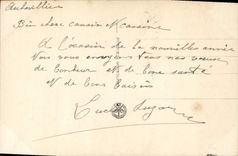 Aubervilliers
Bien chers cousin et cousine
A l'occasion de la nouvelle année
Vous vous envoyons tous nos vœux
de bonheur et de bone santé
et de bons baisers
Lucie Suzanne